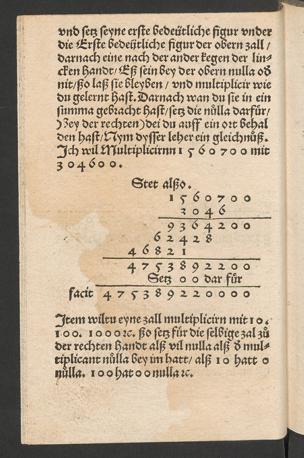 vnd setz seyne erste bedeütliche figur vnder
die Erste bedeütliche figur der obern zall /
darnach eine nach der ander kegen der lin-
cken handt / Eß sein bey der obern nulla oð
nit / ßo laß sie bleyben / vnd multiplicir wie
du gelernt hast. Darnach wan du sie in ein
summa gebracht hast / setz die nůlla darfür /
) bey der rechten ) dei du auff ein ort behal
den hast / Nym dysser leher ein gleichnüß.
Ich wil Multiplicirnn 1560700 mit
304600.
Stet alßo.
1560700
3046
9364200
62428
46821
4753892200
Setz 00 dar für
facit 475389220000
Item wiltu eyne zall multiplicirn mit 10.
100. 1000 ⁊c. ßo setz für die selbige zal zů
der rechten handt alß vil nulla alß ð mul-
tiplicant nůlla bey im hatt / alß 10 hatt 0
nůlla. 100 hat 00 nulla ⁊c.